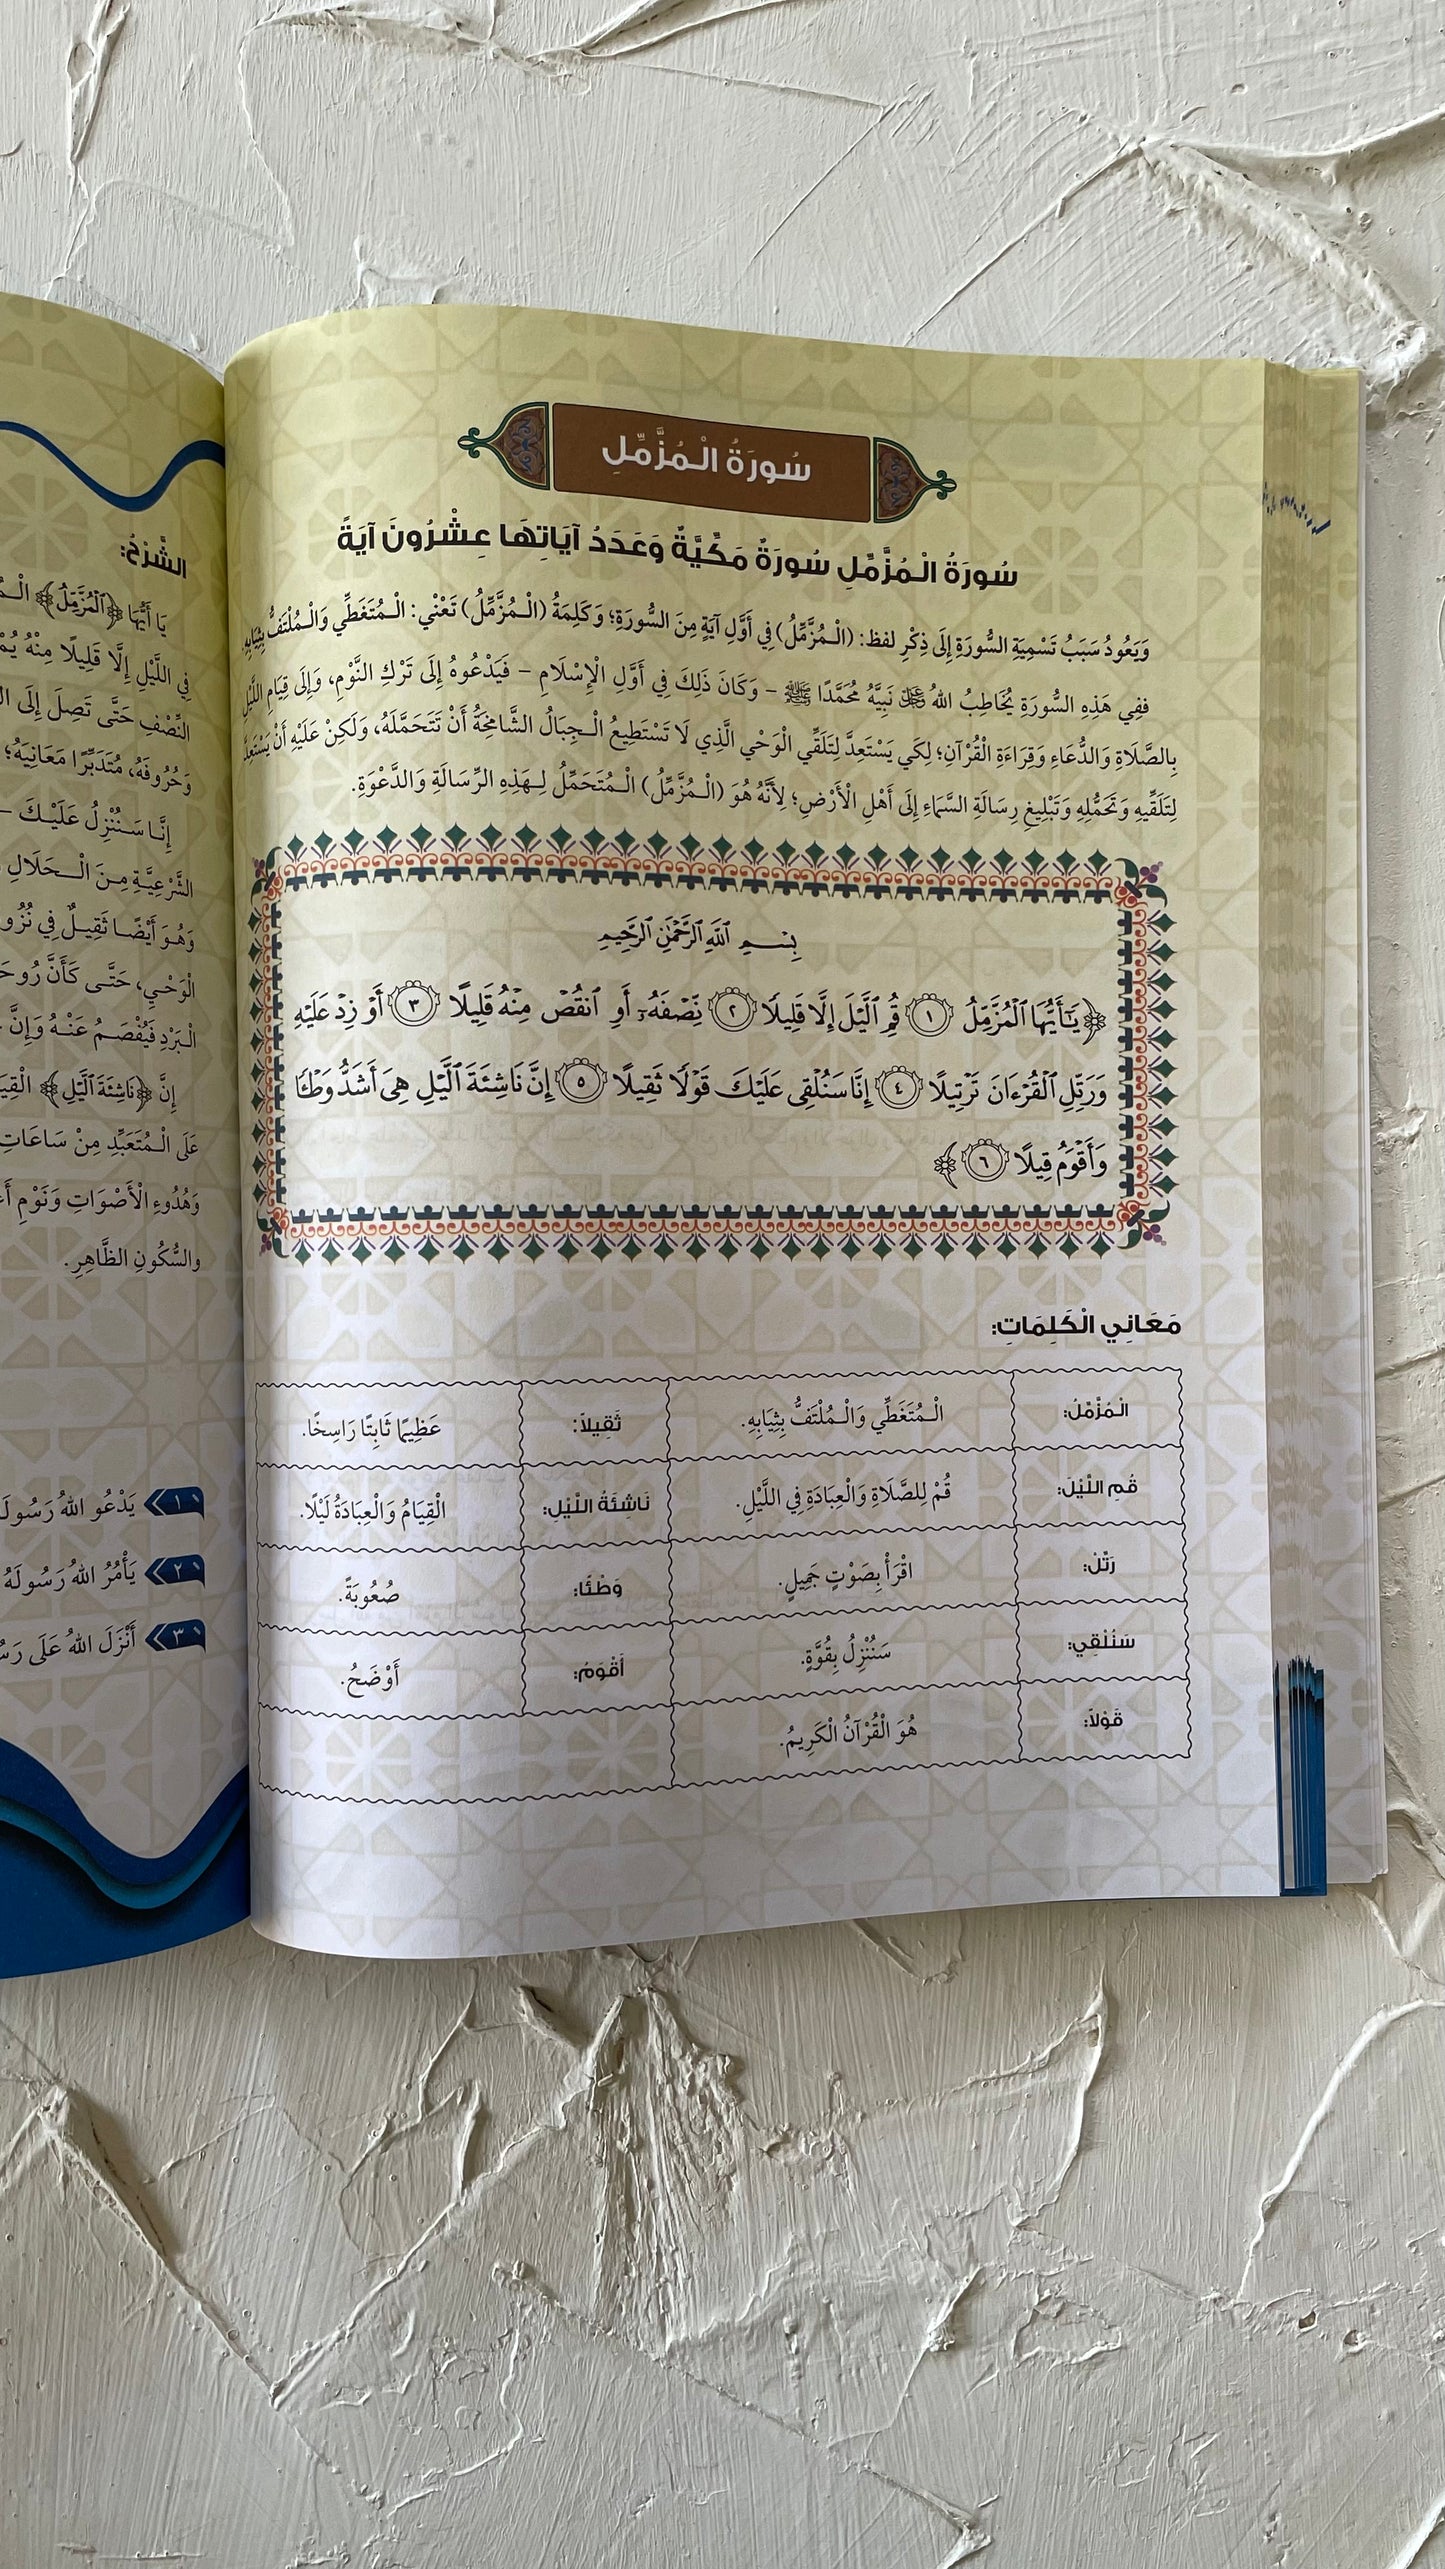 سُورَةُ الْمُزَّمِّلِ
سُورَةُ الْمُزَّمِّلِ سُورَةٌ مَكِّيَّةٌ وَعَدَدُ آيَاتِهَا عِشْرُونَ آيَةً
وَيَعُودُ سَبَبُ تَسْمِيَةِ السُّورَةِ إِلَى ذِكْرِ لفظ: (الْمُزَّمِّلُ) فِي أَوَّلِ آيَةٍ مِنَ السُّورَةِ؛ وَكَلِمَةُ (الْمُزَّمِّلُ) تَعْنْي: الْمُتَغَطِّي وَالْمُلْتَفُّ بِثِيَابِهِ.
ففِي هَذِهِ السُّورَةِ يُخَاطِبُ اللهُ ﷻ نَبِيَّهُ مُحَمَّدًا ﷺ – وَكَانَ ذَلِكَ فِي أَوَّلِ الْإِسْلَامِ – فَيَدْعُوهُ إِلَى تَرْكِ النَّوْمِ، وَإِلَى قِيَامِ اللَّيْلِ
بِالصَّلَاةِ وَالدُّعَاءِ وَقِرَاءَةِ الْقُرْآنِ؛ لِكَي يَسْتَعِدَّ لِتَلَقِّي الْوَحْيِ الَّذِي لَا تَسْتَطِيعُ الْجِبَالُ الشَّامِخَةُ أَنْ تَتَحَمَّلَهُ، وَلَكِنْ عَلَيْهِ أَنْ يَسْتَعِدَّ
لِتَلَقِّيهِ وَتَحَمُّلِهِ وَتَبْلِيغِ رِسَالَةِ السَّمَاءِ إِلَى أَهْلِ الْأَرْضِ؛ لِأَنَّهُ هُوَ (الْمُزَّمِّلُ) الْمُتَحَمِّلُ لِهَذِهِ الرِّسَالَةِ وَالدَّعْوَةِ.
بِسْمِ ٱللَّهِ ٱلرَّحْمَٰنِ ٱلرَّحِيمِ
﴿يَٰٓأَيُّهَا ٱلْمُزَّمِّلُ ١ قُمِ ٱلَّيْلَ إِلَّا قَلِيلًا ٢ نِّصْفَهُۥٓ أَوِ ٱنقُصْ مِنْهُ قَلِيلًا ٣ أَوْ زِدْ عَلَيْهِ
وَرَتِّلِ ٱلْقُرْءَانَ تَرْتِيلًا ٤ إِنَّا سَنُلْقِى عَلَيْكَ قَوْلًا ثَقِيلًا ٥ إِنَّ نَاشِئَةَ ٱلَّيْلِ هِىَ أَشَدُّ وَطْـًٔا
وَأَقْوَمُ قِيلًا ٦﴾
مَعَانِي الْكَلِمَاتِ:
الْمُزَّمِّلُ: الْمُتَغَطِّي وَالْمُلْتَفُّ بِثِيَابِهِ. ثَقِيلًا: عَظِيمًا ثَابِتًا رَاسِخًا.
قُمِ اللَّيْلَ: قُمْ لِلصَّلَاةِ وَالْعِبَادَةِ فِي اللَّيْلِ. نَاشِئَةُ اللَّيْلِ: الْقِيَامُ وَالْعِبَادَةُ لَيْلًا.
رَتِّلْ: اقْرَأْ بِصَوْتٍ جَمِيلٍ. وَطْئًا: صُعُوبَةً.
سَنُلْقِي: سَنُنْزِلُ بِقُوَّةٍ. أَقْوَمُ: أَوْضَحُ.
قَوْلًا: هُوَ الْقُرْآنُ الْكَرِيمُ.
الشَّرْحُ:
يَا أَيُّهَا ﴿ٱلْمُزَّمِّلُ﴾
فِي اللَّيْلِ إِلَّا قَلِيلًا مِنْهُ
النِّصْفِ حَتَّى تَصِلَ إِلَى
وَحُرُوفَهُ، مُتَدَبِّرًا مَعَانِيَهُ؛
إِنَّا سَنُنْزِلُ عَلَيْكَ –
الشَّرْعِيَّةِ مِنَ الْحَلَالِ
وَهُوَ أَيْضًا ثَقِيلٌ فِي
الْوَحْيِ، حَتَّى كَأَنَّ
الْبَرْدِ فَيُفْصَمُ عَنْهُ وَإِنَّ
إِنَّ ﴿نَاشِئَةَ ٱلَّيْلِ﴾
عَلَى الْمُتَعَبِّدِ مِنْ سَاعَاتِ
وَهُدُوءِ الْأَصْوَاتِ وَنَوْمِ
والسُّكُونِ الظَّاهِرِ.
١ يَدْعُو اللهُ
٢ يَأْمُرُ اللهُ رَسُولَهُ
٣ أَنْزَلَ اللهُ عَلَى